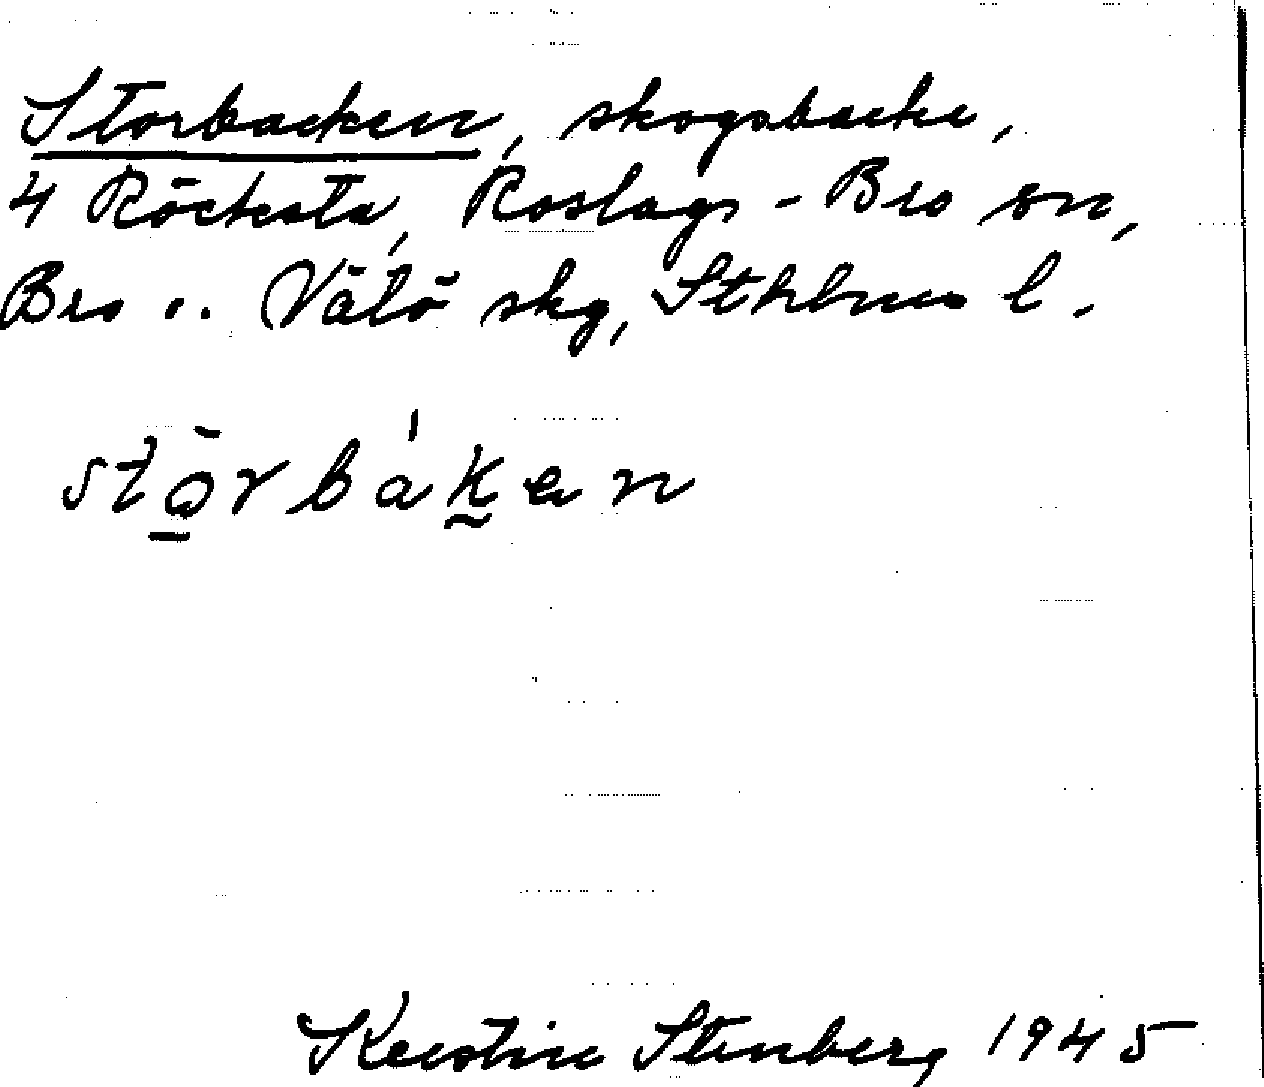 Storbacken, skogsbacke,
4 Röcksta, Roslags-Bro sn,
Bro o. Vätö skg, Sthlms l.
stōrbàken
Kerstin Stenberg 1945